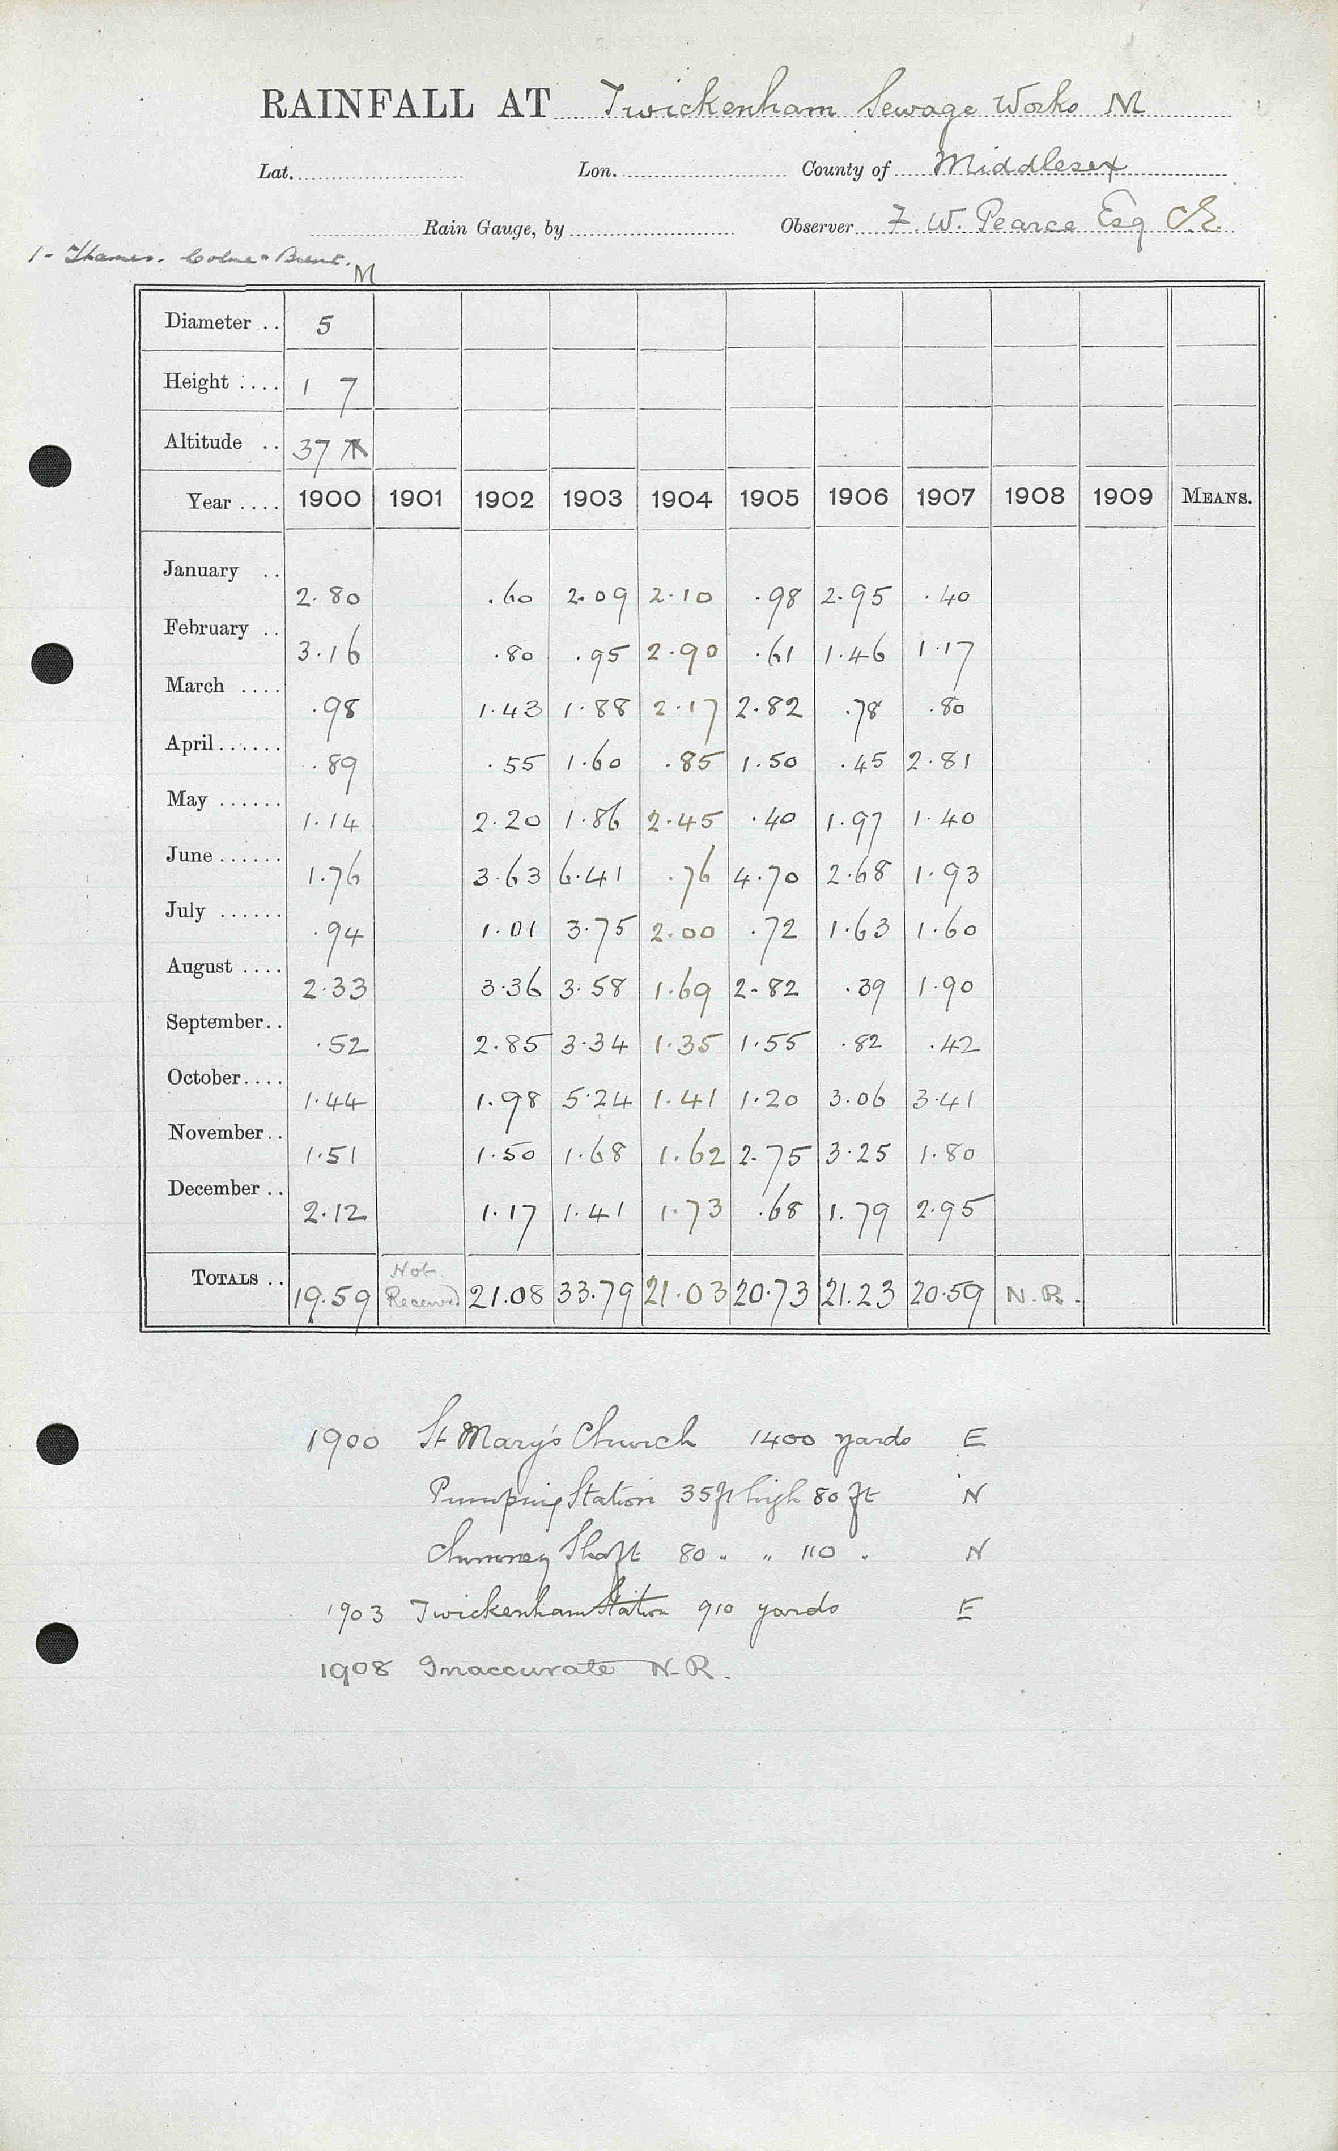 RAINFALL AT Twickenham Sewage Works M
Lat. Lon. County of Middlesex
Rain Gauge, by Observer F. W. Pearce Esq C.E.
1 - Thames. Colne & Brent.
M
Diameter .. 5
Height .... 1 7
Altitude .. 37
Year .... 1900 1901 1902 1903 1904 1905 1906 1907 1908 1909 MEANS.
January .. 2.80 .60 2.09 2.10 .98 2.95 .40
February .. 3.16 .80 .95 2.90 .61 1.46 1.17
March .... .98 1.43 1.88 2.17 2.82 .78 .80
April ...... .89 .55 1.60 .85 1.50 .45 2.81
May ...... 1.14 2.20 1.86 2.45 .40 1.97 1.40
June ...... 1.76 3.63 6.41 .76 4.70 2.68 1.93
July ...... .94 1.01 3.75 2.00 .72 1.63 1.60
August .... 2.33 3.36 3.58 1.69 2.82 .39 1.90
September.. .52 2.85 3.34 1.35 1.55 .82 .42
October.... 1.44 1.98 5.24 1.41 1.20 3.06 3.41
November.. 1.51 1.50 1.68 1.62 2.75 3.25 1.80
December .. 2.12 1.17 1.41 1.73 .68 1.79 2.95
TOTALS .. 19.59 Not Received 21.08 33.79 21.03 20.73 21.23 20.59 N.R.
1900 St Mary's Church 1400 yards E
Pumping Station 35 ft high 80 ft N
Chimney Shaft 80 " " 110 " N
1903 Twickenham Station 910 yards E
1908 Inaccurate N.R.